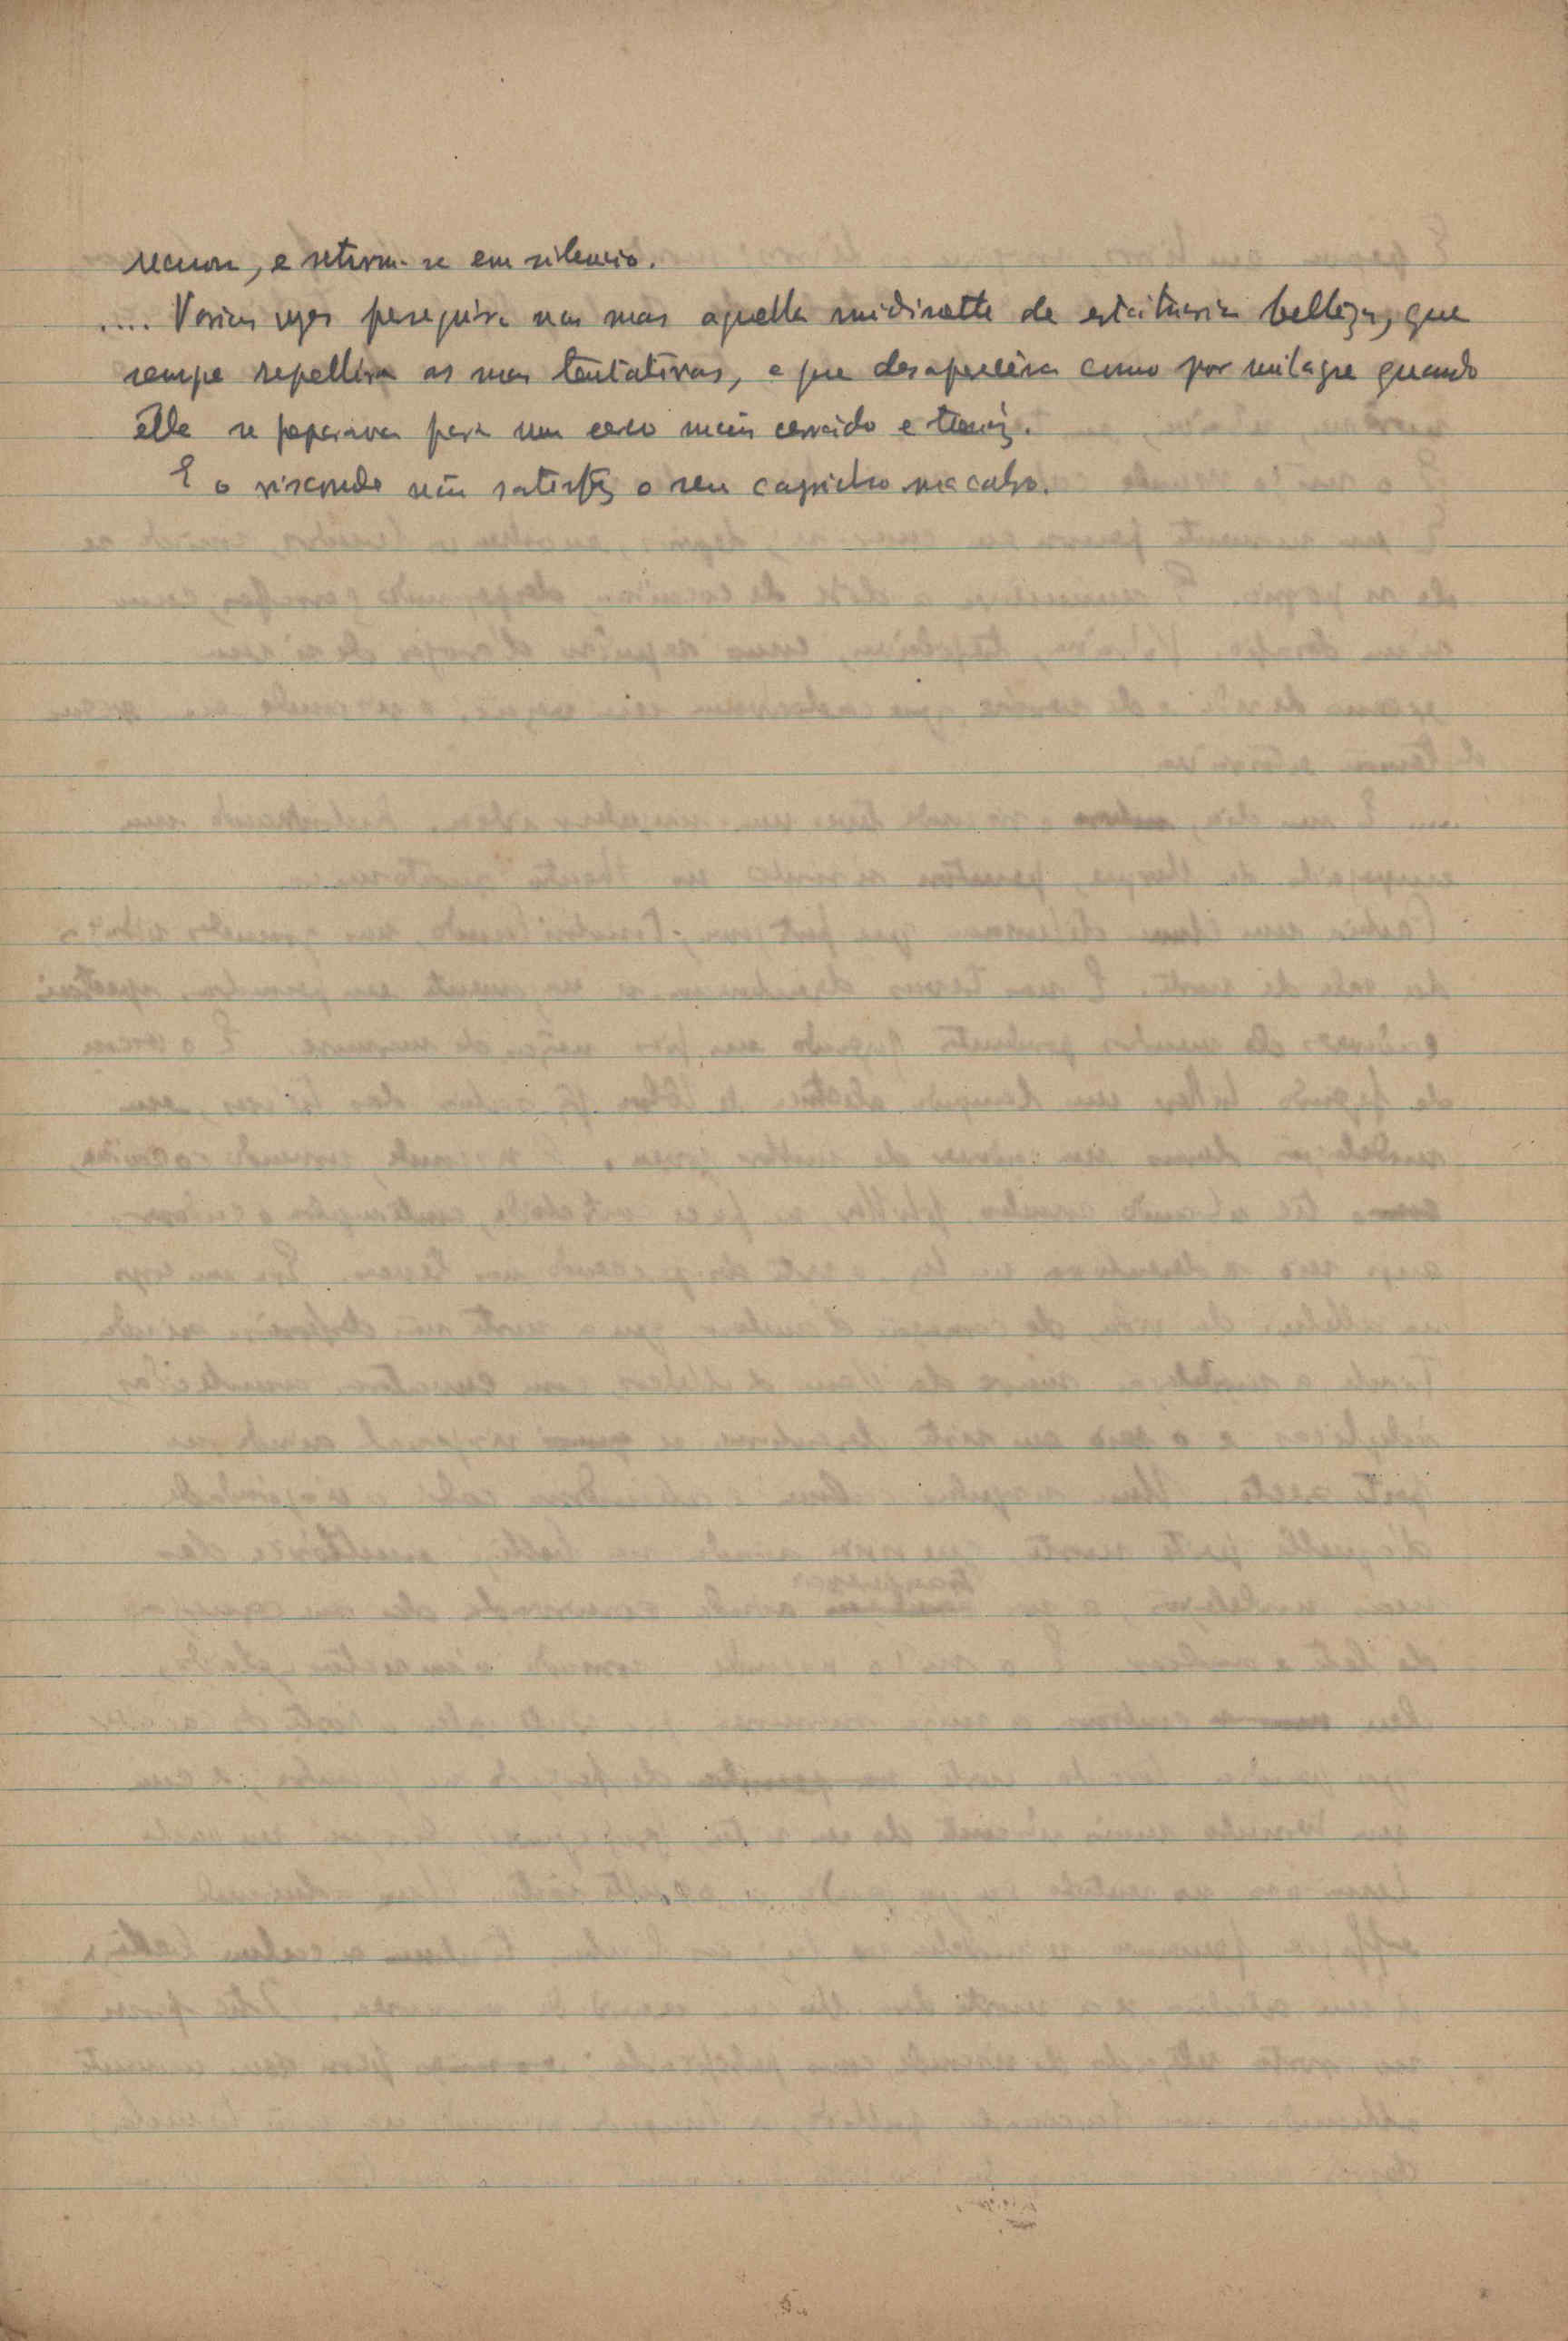 recuou, e retirou-se em silencio.
.... Varias vezes perseguira nas ruas aquella midinette de estatuaria belleza, que
sempre repellira as suas tentativas, e que desaparecêra como por milagre quando
elle se preparava para um cerco mais cerrado e tenáz.
E o visconde não satisfez o seu capricho macabro.